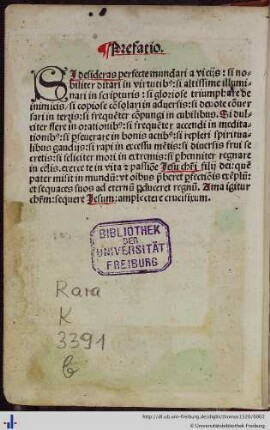 Prefatio.
SI desideras perfecte mundari a vicijs: si no
biliter ditari in virtutibꝰ: si altissime illumi
nari in scripturis: si gloriose triumphare de
inimicis: si copiose cõsolari in aduersis: si deuote cõuer
sari in terris: si frequẽter cõpungi in cubilibus. Si dul
citer flere in orationibꝰ: si frequẽter accendi in medita
tionibꝰ: si pseuerare in bonis actibꝰ: si repleri spiritua
libus gaudijs: si rapi in excessu mẽtis: si diuersis frui se
cretis: si feliciter mori in extremis: si phenniter regnare
in celis. exerce te in vita passiõe Jesu chri filij dei: quẽ
pater misit in mundũ: vt oibus pberet pfectiõis exẽplũ:
et sequaces suos ad eternũ pduceret regnũ. Ama igitur
chrm: sequere Jesum: amplectere crucifixum.
BIBLIOTHEK
DER
UNIVERSITÄT
FREIBURG
Rara
K
3391
b
http://dl.ub.uni-freiburg.de/diglit/thomas1520/0003
© Universitätsbibliothek Freiburg